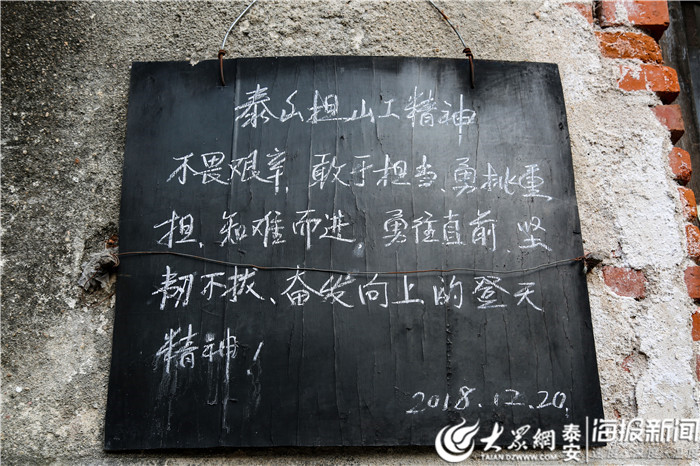 泰山担山工精神
不畏艰辛,敢于担当、勇挑重
担、知难而进、勇往直前、坚
韧不拔、奋发向上的登天
精神!
2018.12.20.
大众網 泰安 海报新闻
TAIAN.DZWWW.COM